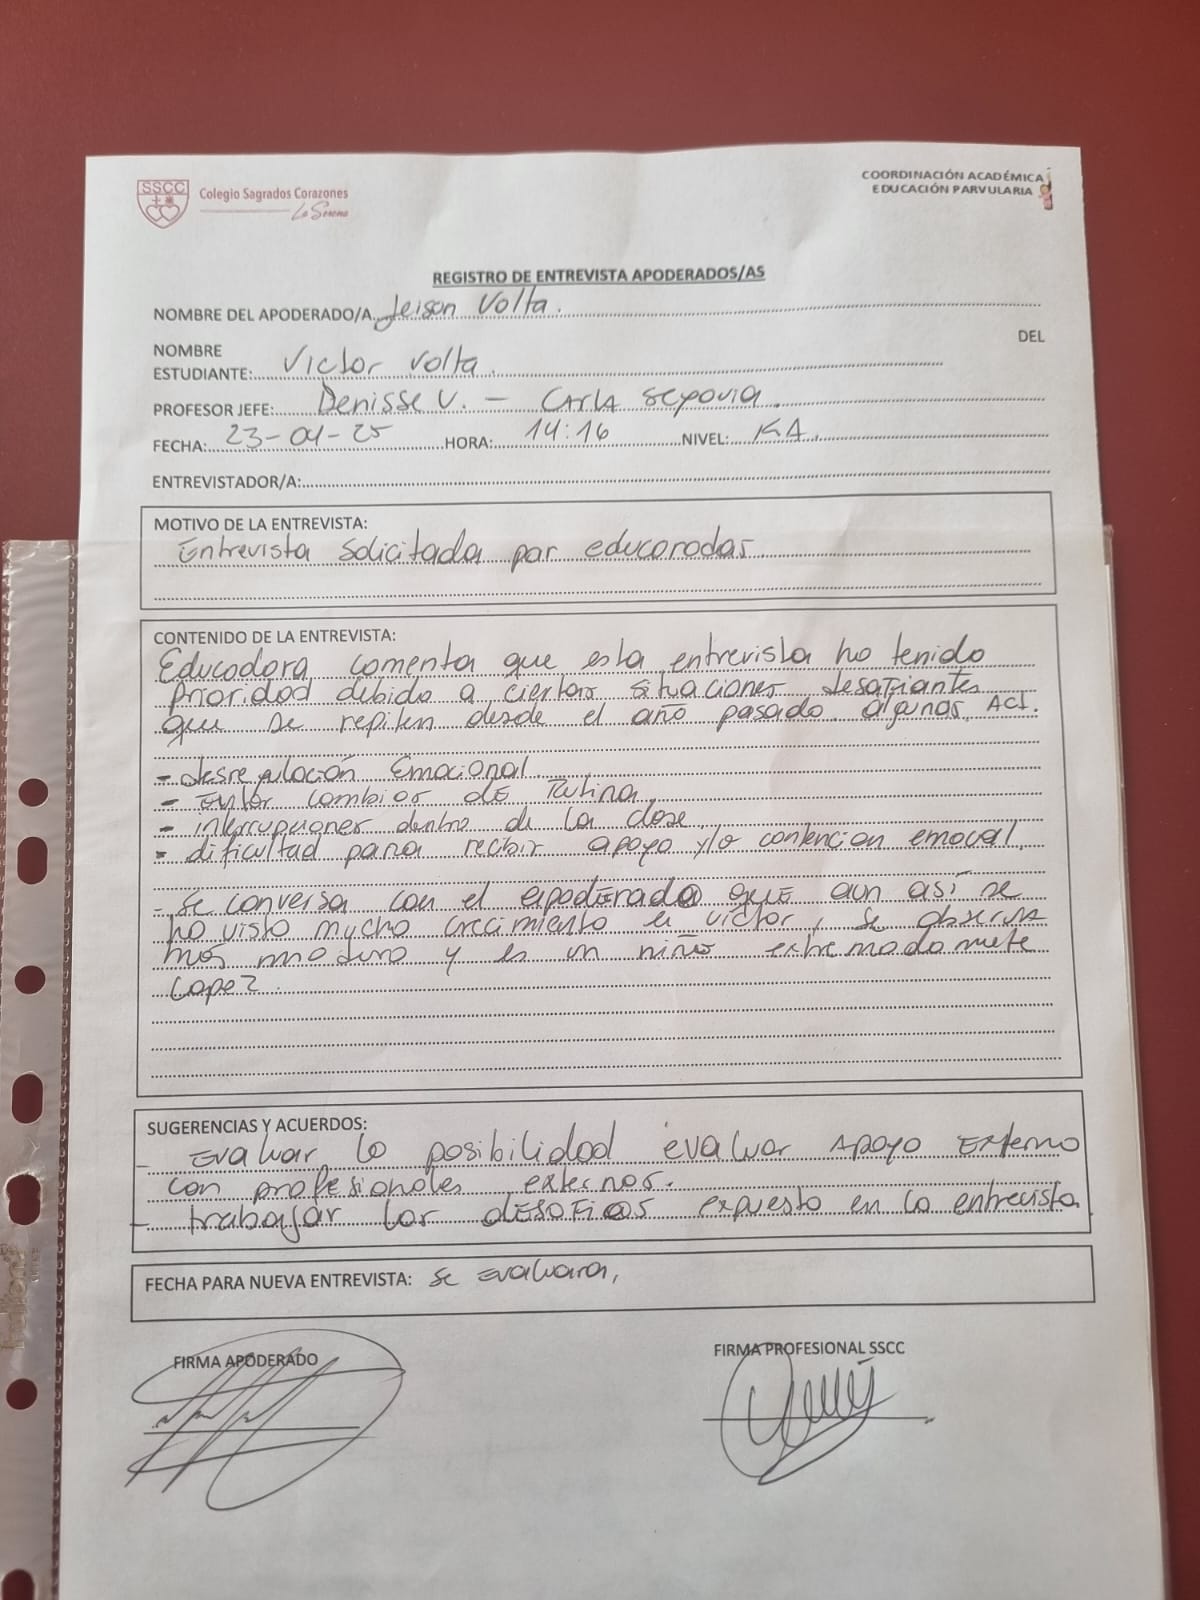 SSCC
Colegio Sagrados Corazones
La Serena
COORDINACIÓN ACADÉMICA
EDUCACIÓN PARVULARIA
REGISTRO DE ENTREVISTA APODERADOS/AS
NOMBRE DEL APODERADO/A Jeison Volta.
NOMBRE DEL
ESTUDIANTE: Victor Volta.
PROFESOR JEFE: Denisse V. – Carla Segovia.
FECHA: 23-04-25 HORA: 14:16 NIVEL: KA.
ENTREVISTADOR/A:
MOTIVO DE LA ENTREVISTA:
Entrevista solicitada por educoradas
CONTENIDO DE LA ENTREVISTA:
Educadora comenta que esta entrevista ha tenido
prioridad debido a ciertas situaciones desafiantes
que se repiten desde el año pasado. algunas Act.
- desregulación Emocional
- cambios de Rutina,
- interrupciones dentro de la clase,
- dificultad para recibir apoyo y/o contención emocal,
- se conversa con el apoderado que aun así se
ha visto mucho crecimiento en victor, se observa
más maduro y es un niño extremadamete
Capaz.
SUGERENCIAS Y ACUERDOS:
- Evaluar la posibilidad evaluar Apoyo Externo
con profesionales externos.
- trabajar los desafios expuesto en la entrevista.
FECHA PARA NUEVA ENTREVISTA: se evaluara,
FIRMA APODERADO
FIRMA PROFESIONAL SSCC